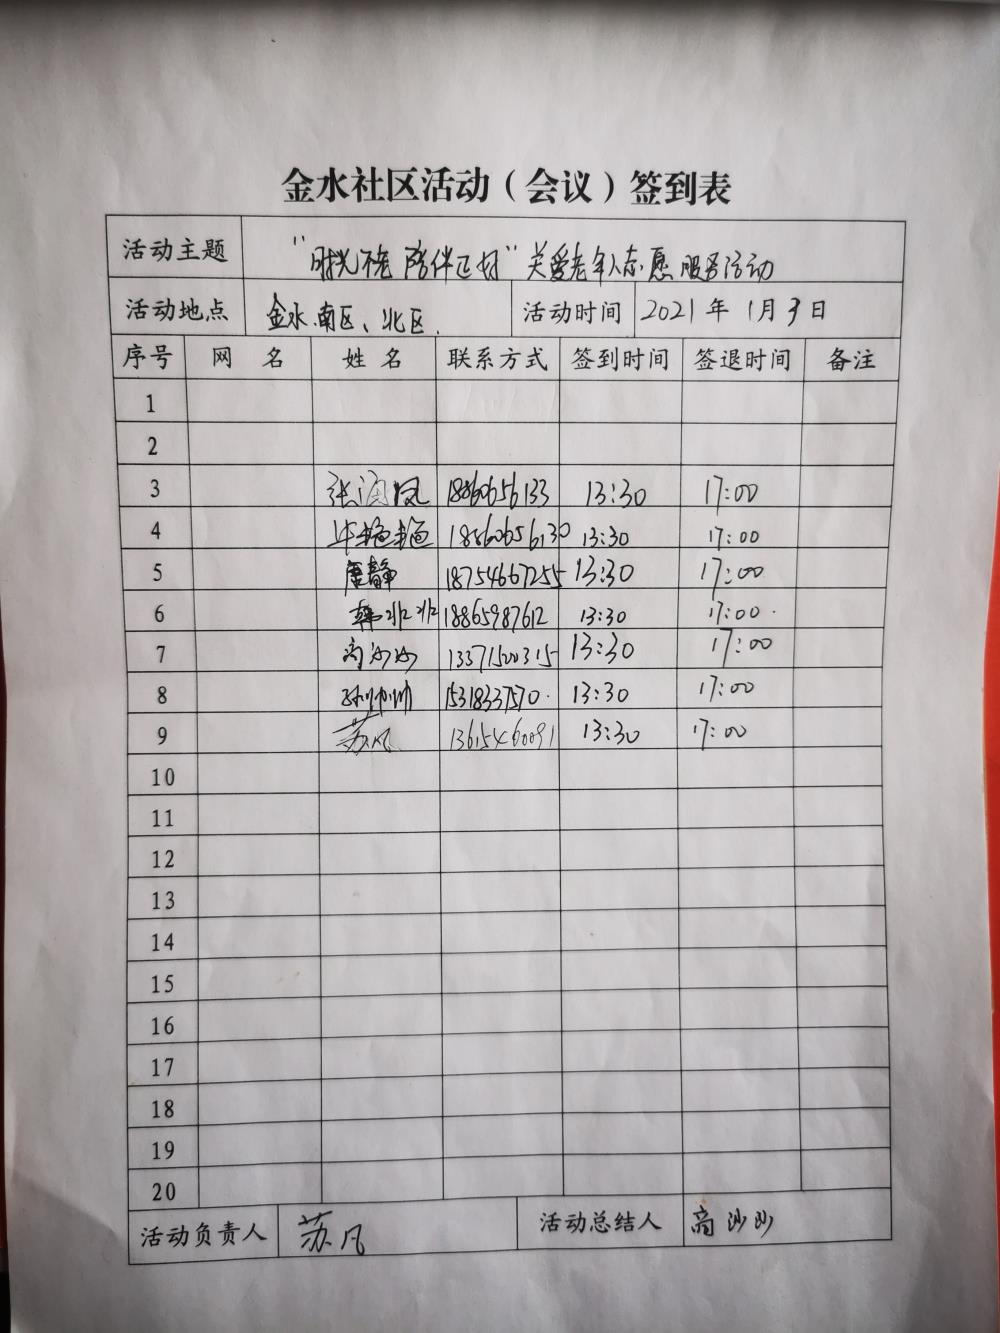 金水社区活动（会议）签到表
活动主题 “时光不老 陪伴正好”关爱老年人志愿服务活动
活动地点 金水南区、北区. 活动时间 2021年1月3日
序号 网 名 姓 名 联系方式 签到时间 签退时间 备注
1
2
3 张海凤 18860656133 13:30 17:00
4 毕艳艳 18560656130 13:30 17:00
5 唐静 18754667255 13:30 17:00
6 韩非非 18865987612 13:30 17:00
7 高沙沙 13371500315 13:30 17:00
8 孙帅帅 15318337570 13:30 17:00
9 苏凡 13615460091 13:30 17:00
10
11
12
13
14
15
16
17
18
19
20
活动负责人 苏凡 活动总结人 高沙沙